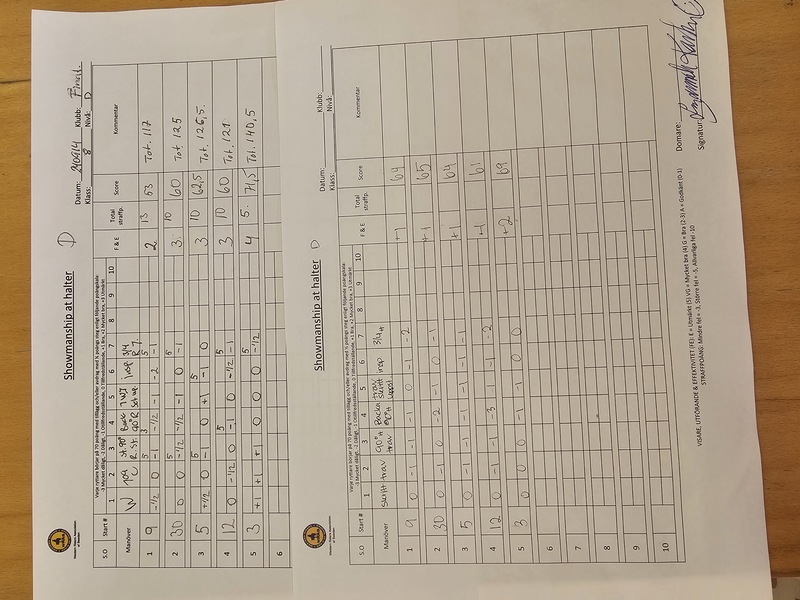 Showmanship at halter D
Datum: 240914 Klubb: Final.
Klass: 8 Nivå: D
Varje ryttare börjar på 70 poäng med tillägg och/eller avdrag med ½ poängs steg enligt följande poängskala:
-3 Mycket dåligt, -2 Dåligt, -1 Otillfredsställande, 0 Tillfredsställande, +1 Bra, +2 Mycket bra, +3 Utmärkt
S.O Start # 1 2 3 4 5 6 7 8 9 10 F & E Total straffp. Score Kommentar
Manöver
1 9 -1/2 0 -1 -1/2 -1 -2 -1 2 13 53 Tot. 117
2 30 0 0 -1/2 -1/2 -1 0 -1 3 10 60 Tot 125
3 5 +1/2 0 -1 0 +1 -1 0 3 10 62,5 Tot. 126,5.
4 12 0 -1/2 0 -1 0 -1/2 -1 3 10 60 Tot. 121
5 3 +1 +1 +1 0 0 0 -1/2 4 5. 71,5 Tot. 140,5
6
Showmanship at halter D
Datum: Klubb:
Klass: Nivå:
Varje ryttare börjar på 70 poäng med tillägg och/eller avdrag med ½ poängs steg enligt följande poängskala:
-3 Mycket dåligt, -2 Dåligt, -1 Otillfredsställande, 0 Tillfredsställande, +1 Bra, +2 Mycket bra, +3 Utmärkt
S.O Start # 1 2 3 4 5 6 7 8 9 10 F & E Total straffp. Score Kommentar
Manöver Skritt trav 90°H trav Backa 90°H trav skritt uppst. insp 3/4 H
1 9 0 -1 -1 -1 0 -1 -2 +1 64
2 30 0 -1 0 -2 -1 0 -1 +1 65
3 5 0 -1 -1 -1 -1 -1 -1 +1 64
4 12 0 -1 -1 -3 -1 -1 -2 61
5 3 0 0 0 -1 -1 0 0 +2 69
6
7
8
9
10
VISARE, UTFÖRANDE & EFFEKTIVITET (FE): E = Utmärkt (5) VG = Mycket bra (4) G = Bra (2-3) A = Godkänt (0-1)
STRAFFPOÄNG: Mindre fel = -3, Större fel = -5, Allvarliga fel -10
Domare:
Signatur: